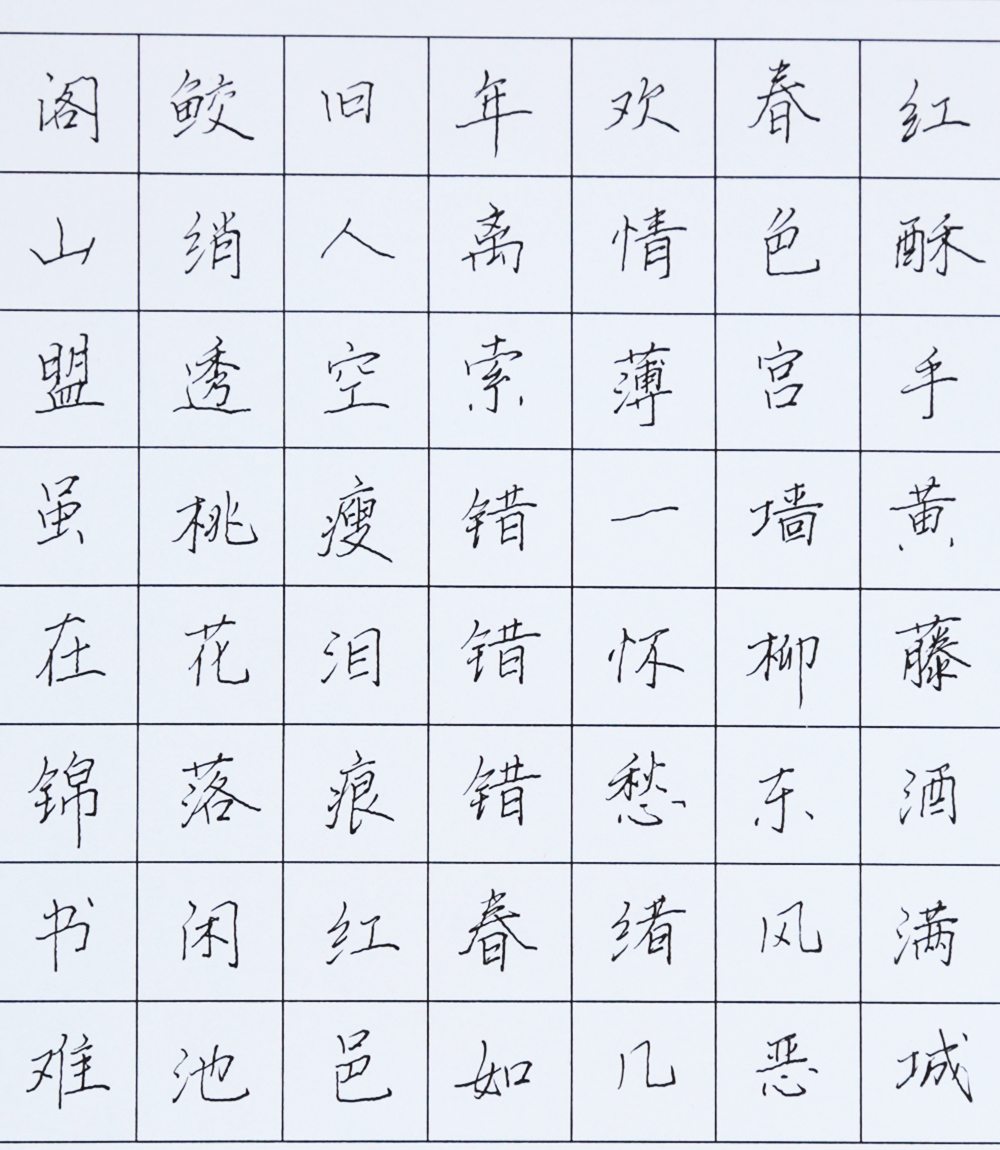 红酥手黄藤酒满城
春色宫墙柳东风恶
欢情薄一怀愁绪几
年离索错错错春如
旧人空瘦泪痕红邑
鲛绡透桃花落闲池
阁山盟虽在锦书难